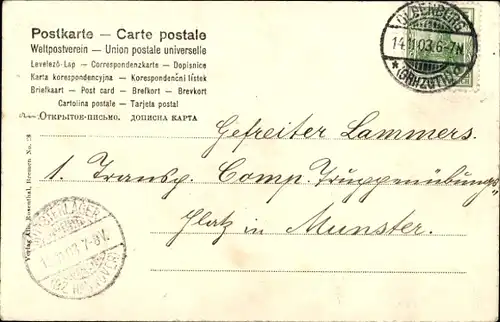 Postkarte — Carte postale
Weltpostverein — Union postale universelle
Levelező-Lap — Correspondenzkarte — Dopisnice
Karta korespondencyjna — Korespondenční lístek
Briefkaart — Post card — Brefkort — Brevkort
Cartolina postale — Tarjeta postal
ОТКРЫТОЕ-ПИСЬМО. ДОПИСНА КАРТА
OLDENBURG
14.11.03.6-7N
* (GRHZGTH.) *
Gefreiter Lammers.
1. Transp. Comp. Truppenübungs-
Platz in Munster.
Verlag Rosenthal, Bremen No.
.11.03.7-8V.